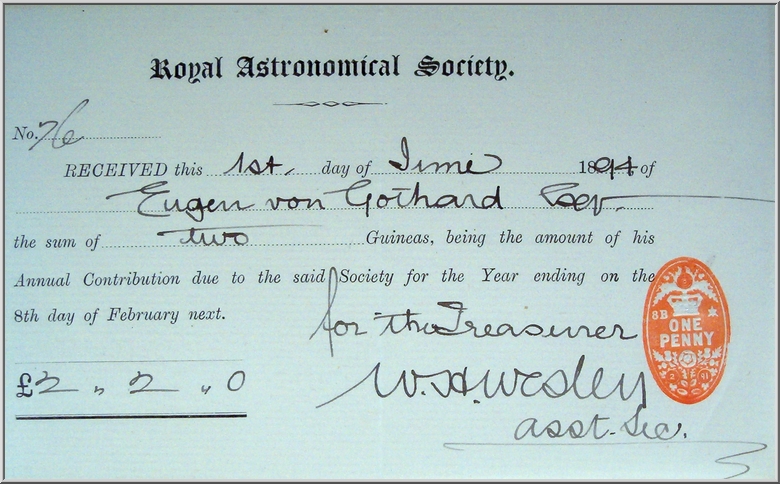 Royal Astronomical Society.
No. 76
RECEIVED this 1st. day of June 1894 of
Eugen von Gothard Esqr.
the sum of two Guineas, being the amount of his
Annual Contribution due to the said Society for the Year ending on the
8th day of February next.
for the Treasurer
£2 " 2 " 0
W. H. Wesley
asst. Sec.
8B
ONE
PENNY